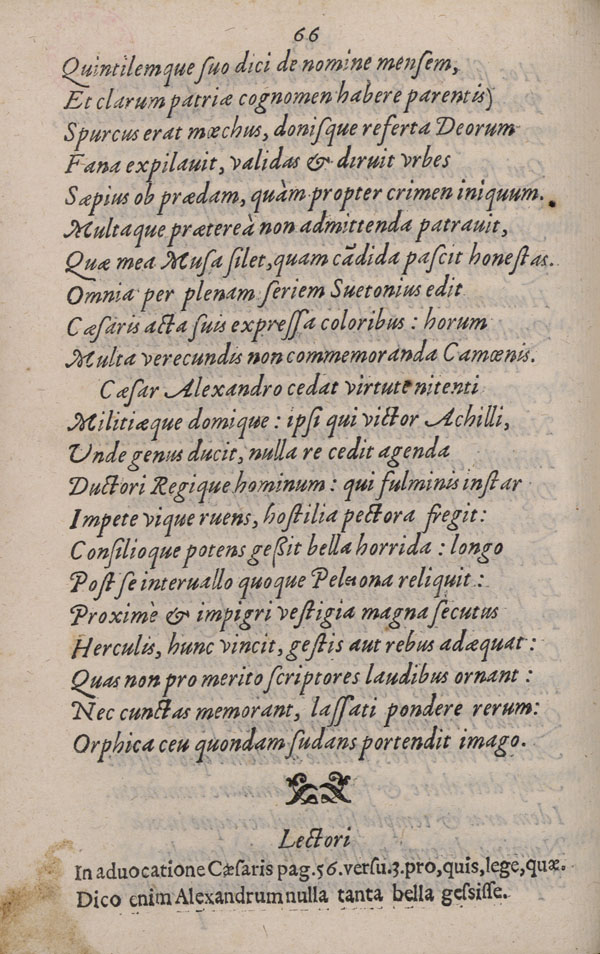 66
Quintilemque ſuo dici de nomine menſem,
Et clarum patriæ cognomen habere parentis)
Spurcus erat mœchus, doniſque referta Deorum
Fana expilauit, validas & diruit vrbes
Sæpius ob prædam, quàm propter crimen iniquum.
Multaque prætereà non admittenda patrauit,
Quæ mea Muſa ſilet, quam cādida paſcit honeſtas.
Omnia per plenam ſeriem Suetonius edit
Cæſaris acta ſuis expreſſa coloribus : horum
Multa verecundis non commemoranda Camœnis.
Cæſar Alexandro cedat virtute nitenti
Militiæque domique : ipſi qui victor Achilli,
Vnde genus ducit, nulla re cedit agenda
Ductori Regique hominum : qui fulminis inſtar
Impete vique ruens, hoſtilia pectora fregit :
Conſilioque potens geßit bella horrida : longo
Poſt ſe interuallo quoque Pelæona reliquit :
Proximè & impigri veſtigia magna ſecutus
Herculis, hunc vincit, geſtis aut rebus adæquat :
Quas non pro merito ſcriptores laudibus ornant :
Nec cunctas memorant, laſſati pondere rerum:
Orphica ceu quondam ſudans portendit imago.
Lectori
In aduocatione Cæſaris pag. 56. verſu. 3. pro, quis, lege, quæ.
Dico enim Alexandrum nulla tanta bella geſsiſſe.